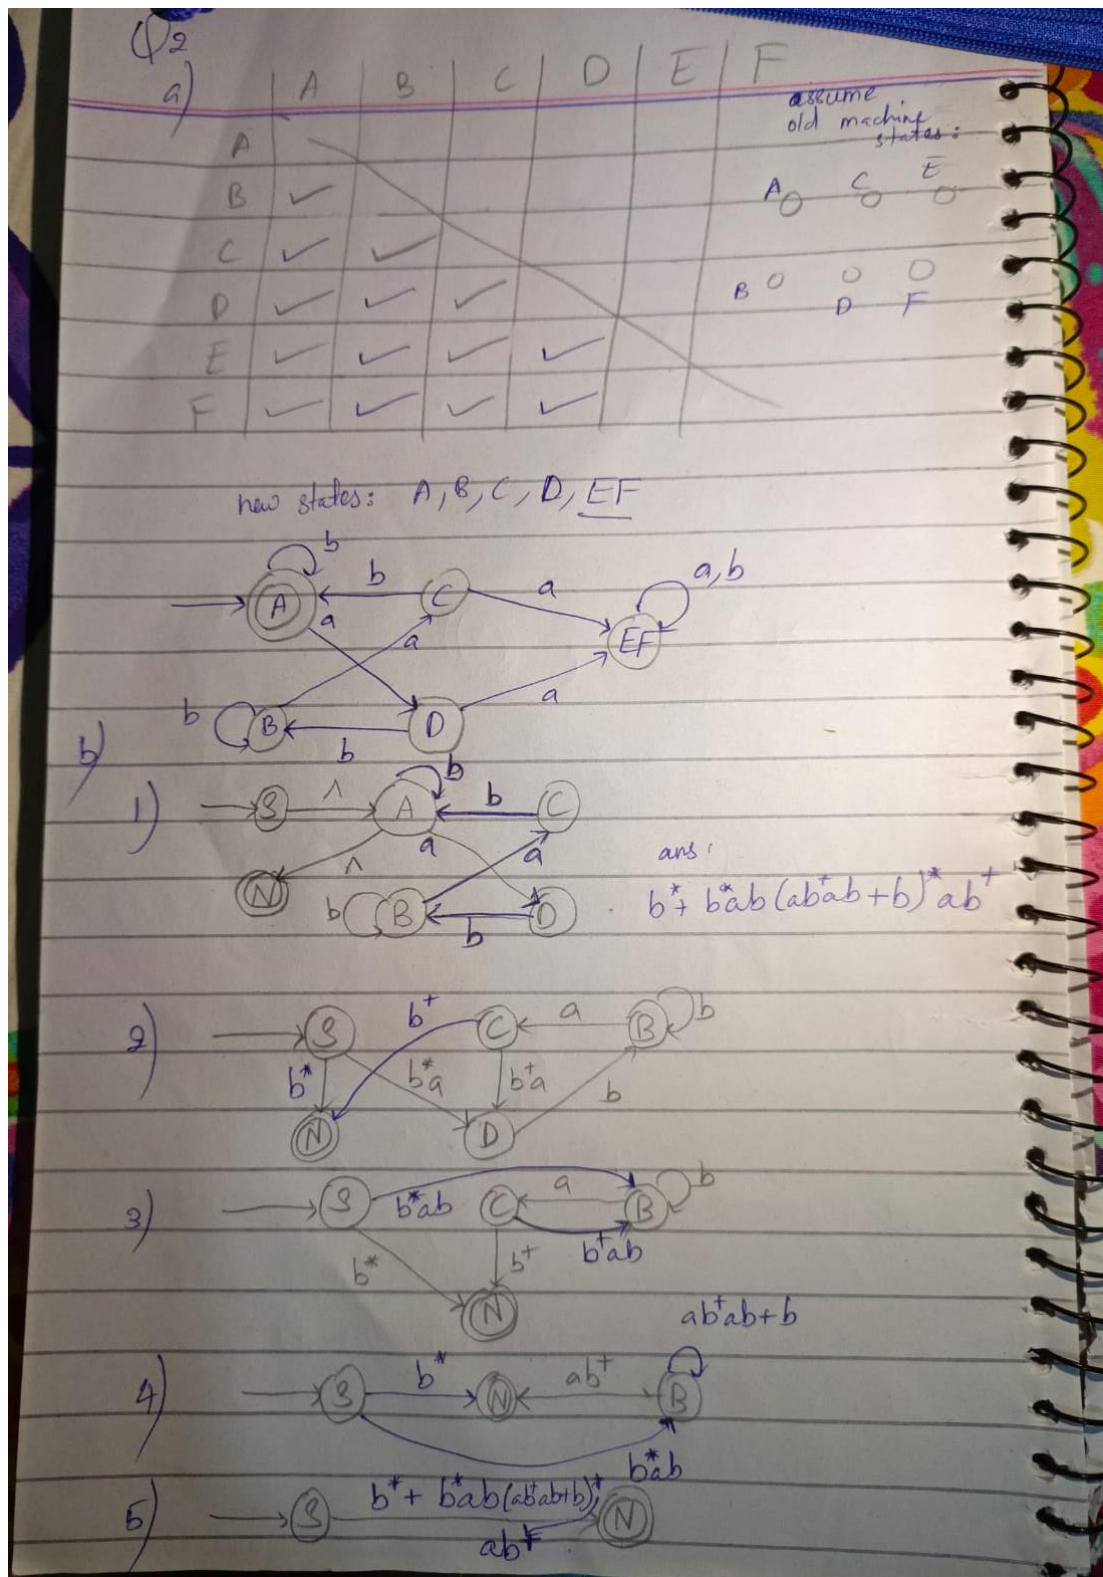 Q2
a)
A B C D E F
assume
old machine
states:
A
B ✓
C ✓ ✓
D ✓ ✓ ✓
E ✓ ✓ ✓ ✓
F ✓ ✓ ✓ ✓
A C E
B D F
new states: A, B, C, D, EF
b
A b C a EF a,b
a a
b B b D a
b)
1) S ^ A b b C
^ a a
N b B b D
ans:
b* + b*ab (ab⁺ab+b)* ab⁺
2) S b⁺ C a B b
b* b*a b⁺a b
N D
3) S b*ab C a B b
b⁺ab
b* b⁺
N
ab⁺ab+b
4) S b* N ab⁺ B
b*ab
5) S b* + b*ab(ab⁺ab+b)* N
ab⁺